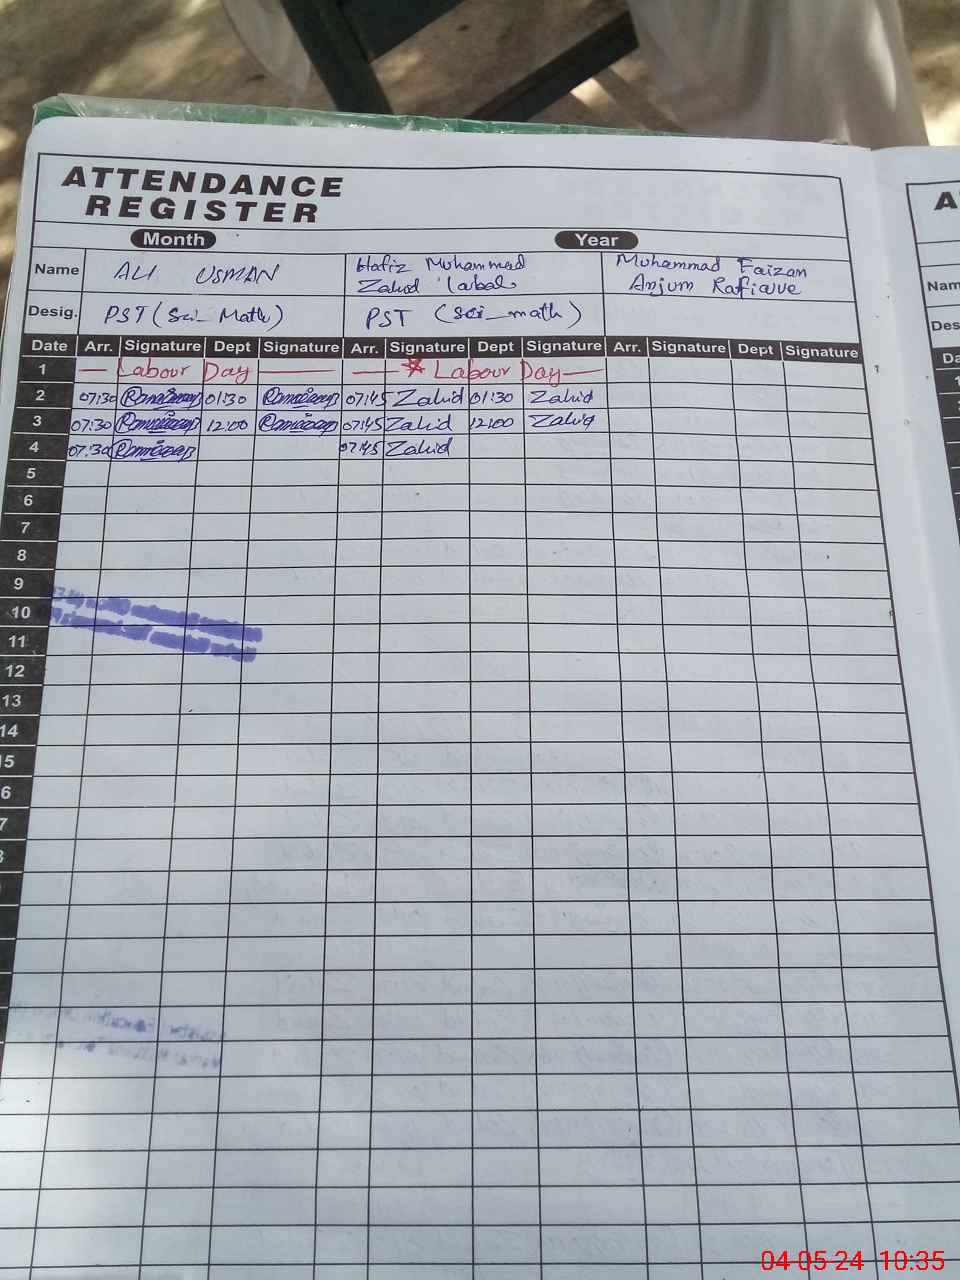 ATTENDANCE
REGISTER
Month Year
Name ALI USMAN Hafiz Muhammad Zahid Muhammad Faizan Anjum
Desig. PST (Sci_Math) PST (Sci_math)
Date Arr. Signature Dept Signature Arr. Signature Dept Signature Arr. Signature Dept Signature
1 — Labour Day — — Labour Day —
2 07:30 01:30 07:45 Zahid 01:30 Zahid
3 07:30 12:00 07:45 Zahid 12:00 Zahid
4 07:30 07:45 Zahid
5
6
7
8
9
10
11
12
13
14
15
6
7
8
A
Nam
Des
Da
04 05 24 10:35